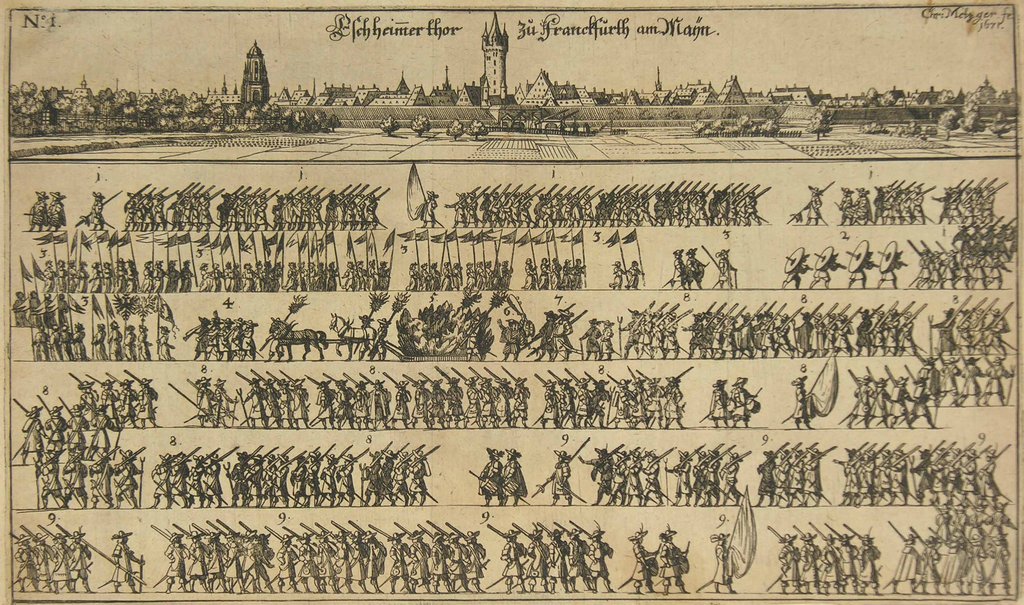 N.º 1.
Eschheimer thor zu Franckfurth am Mayn.
Chri: Metzger fe
1. 1. 1. 1.
3 3 3 3 3 2 1
3 4 6 7 8 8 8
8 8 8 8 8
8. 8 9. 9. 9
9. 9. 9. 9.